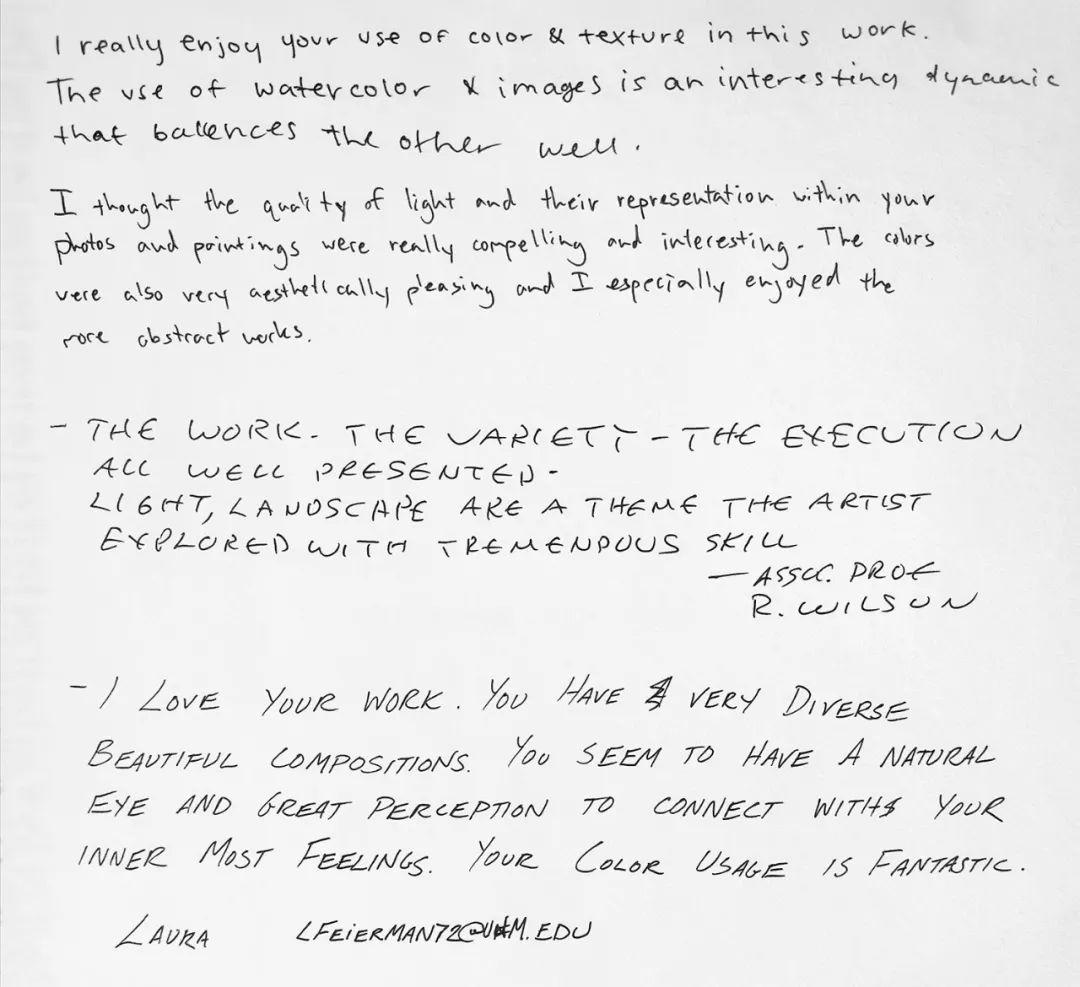 I really enjoy your use of color & texture in this work.
The use of watercolor & images is an interesting dynamic
that balences the other well.
I thought the quality of light and their representation within your
photos and paintings were really compelling and interesting. The colors
were also very aesthetically pleasing and I especially enjoyed the
more abstract works.
- THE WORK - THE VARIETY - THE EXECUTION
ALL WELL PRESENTED -
LIGHT, LANDSCAPE ARE A THEME THE ARTIST
EXPLORED WITH TREMENDOUS SKILL
— ASSOC. PROF
R. WILSON
- I LOVE YOUR WORK. YOU HAVE VERY DIVERSE
BEAUTIFUL COMPOSITIONS. YOU SEEM TO HAVE A NATURAL
EYE AND GREAT PERCEPTION TO CONNECT WITH YOUR
INNER MOST FEELINGS. YOUR COLOR USAGE IS FANTASTIC.
LAURA